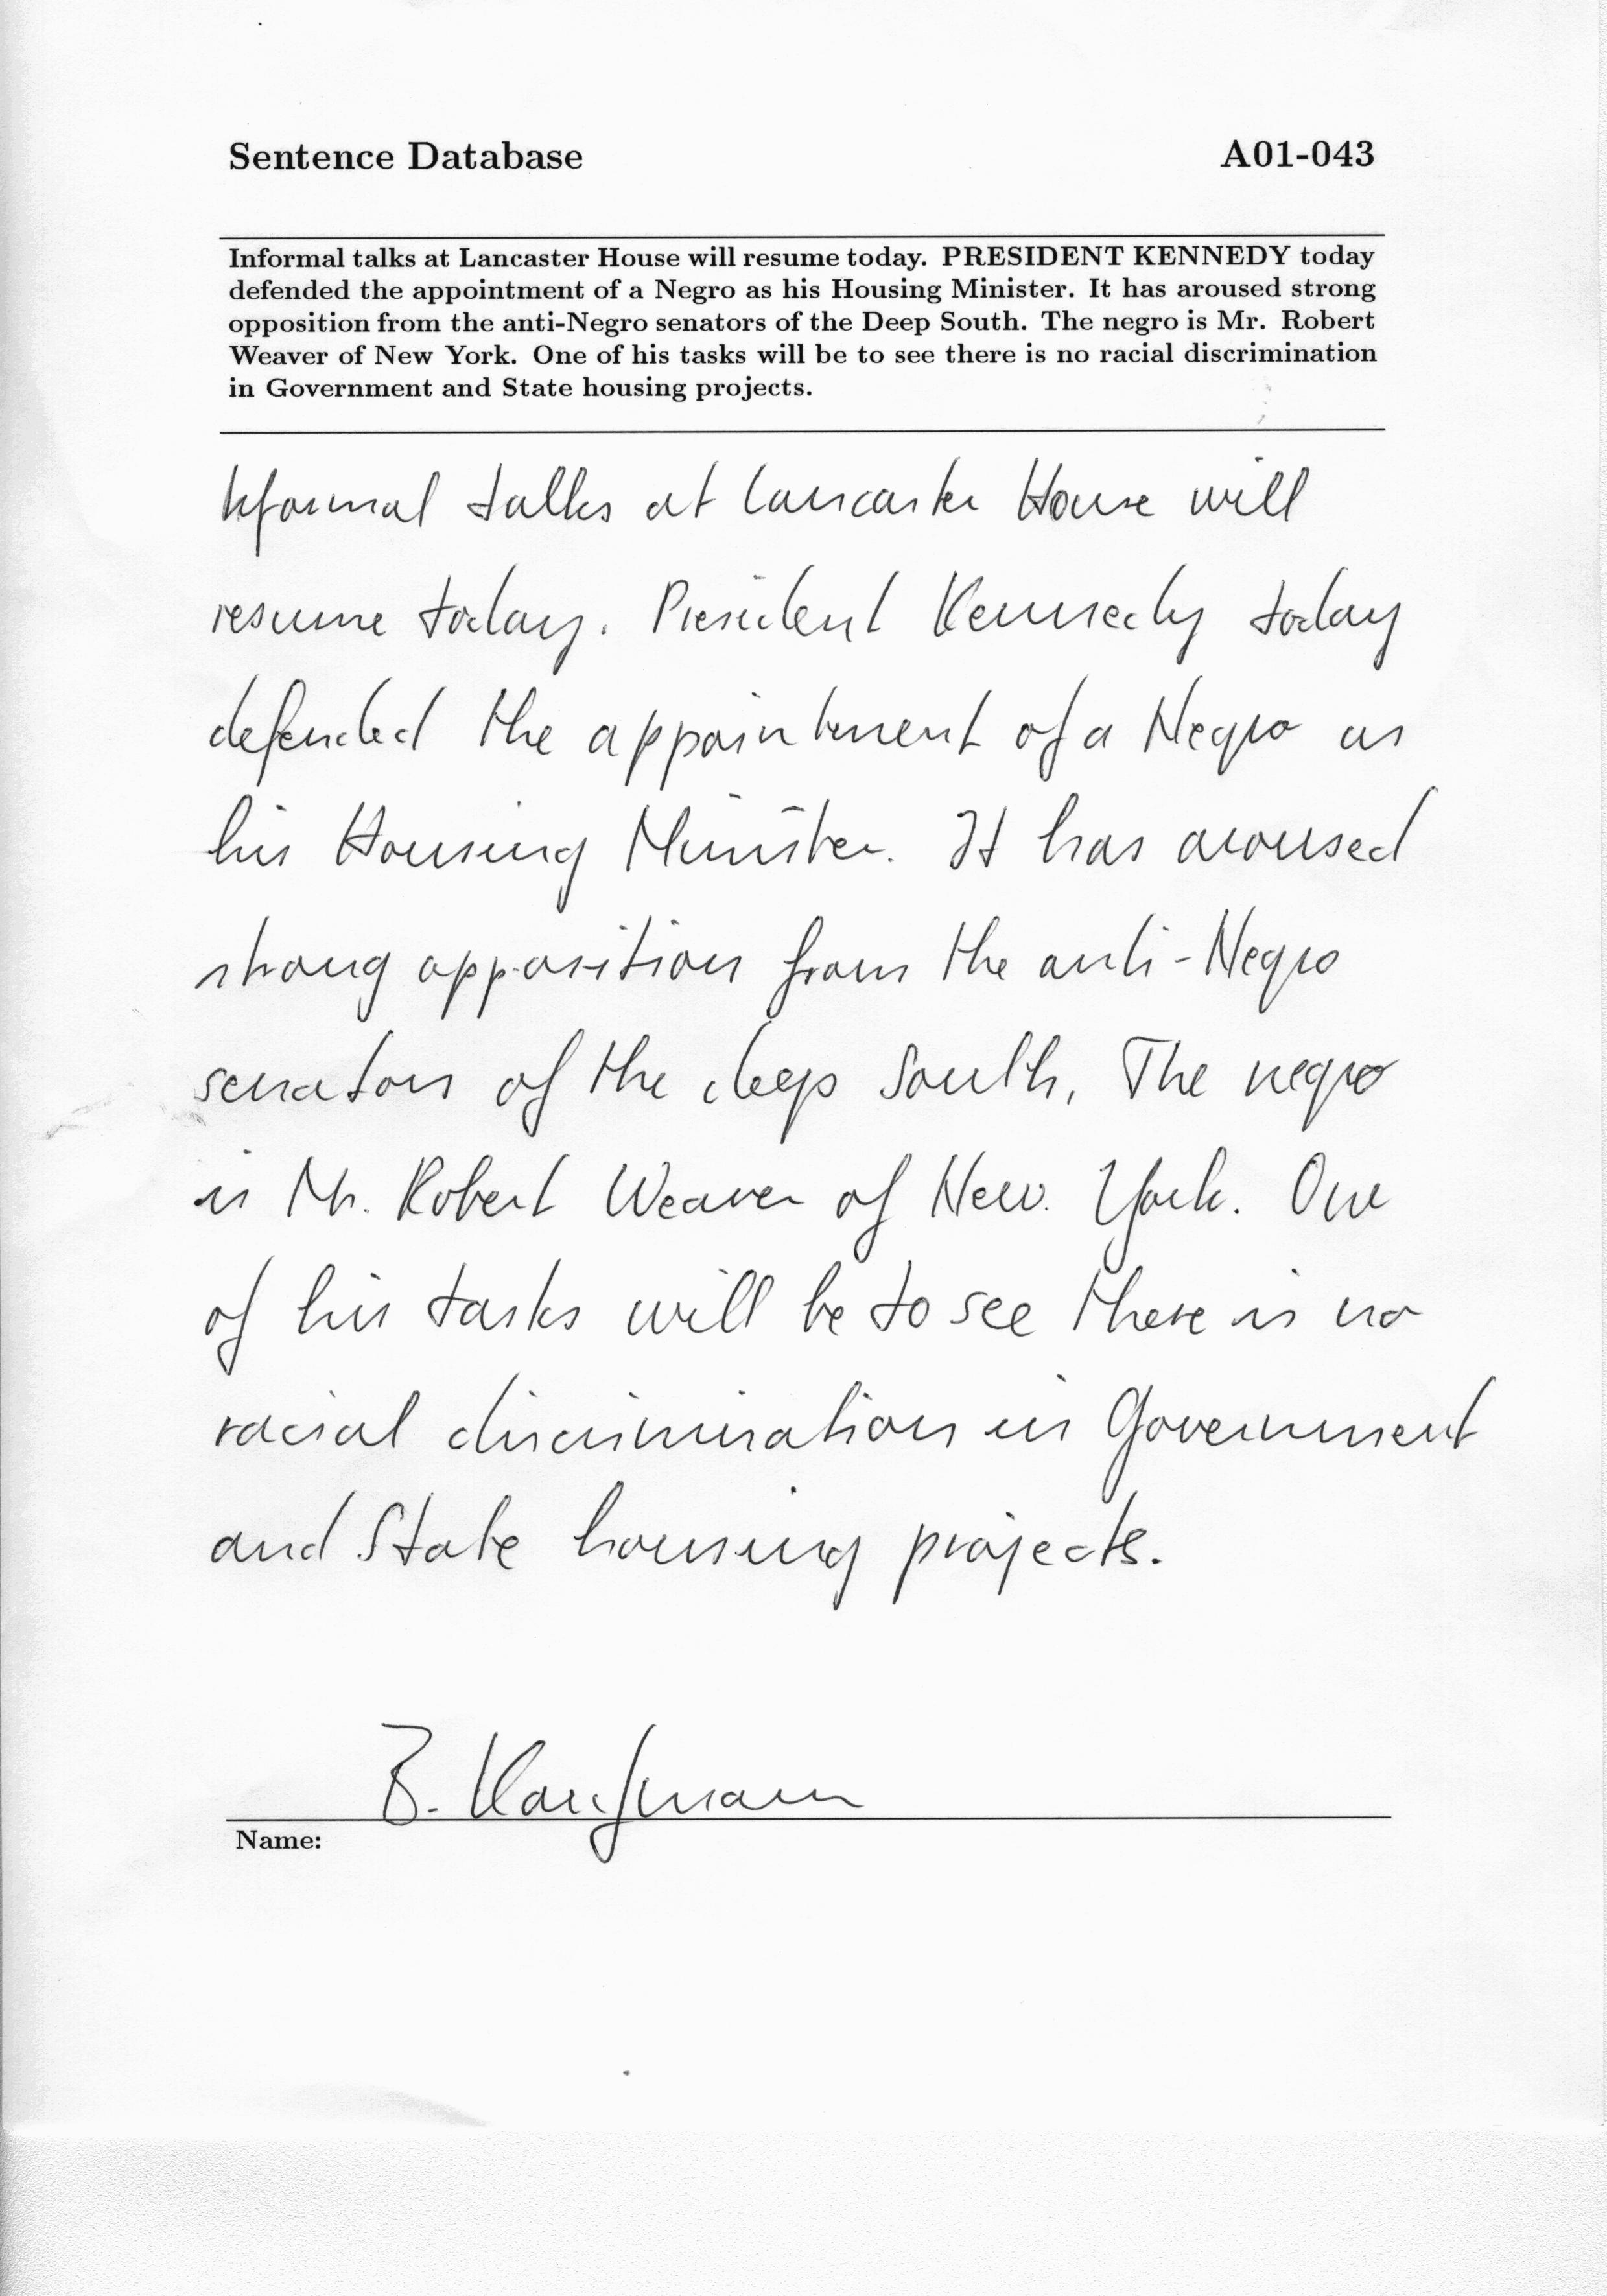 Sentence Database A01-043
Informal talks at Lancaster House will resume today. PRESIDENT KENNEDY today
defended the appointment of a Negro as his Housing Minister. It has aroused strong
opposition from the anti-Negro senators of the Deep South. The negro is Mr. Robert
Weaver of New York. One of his tasks will be to see there is no racial discrimination
in Government and State housing projects.
Informal talks at Lancaster House will
resume today. President Kennedy today
defended the appointment of a Negro as
his Housing Minister. It has aroused
strong opposition from the anti-Negro
senators of the deep South, The negro
is Mr. Robert Weaver of New. York. One
of his tasks will be to see there is no
racial discrimination in Government
and State housing projects.
B. Kaufmann
Name: